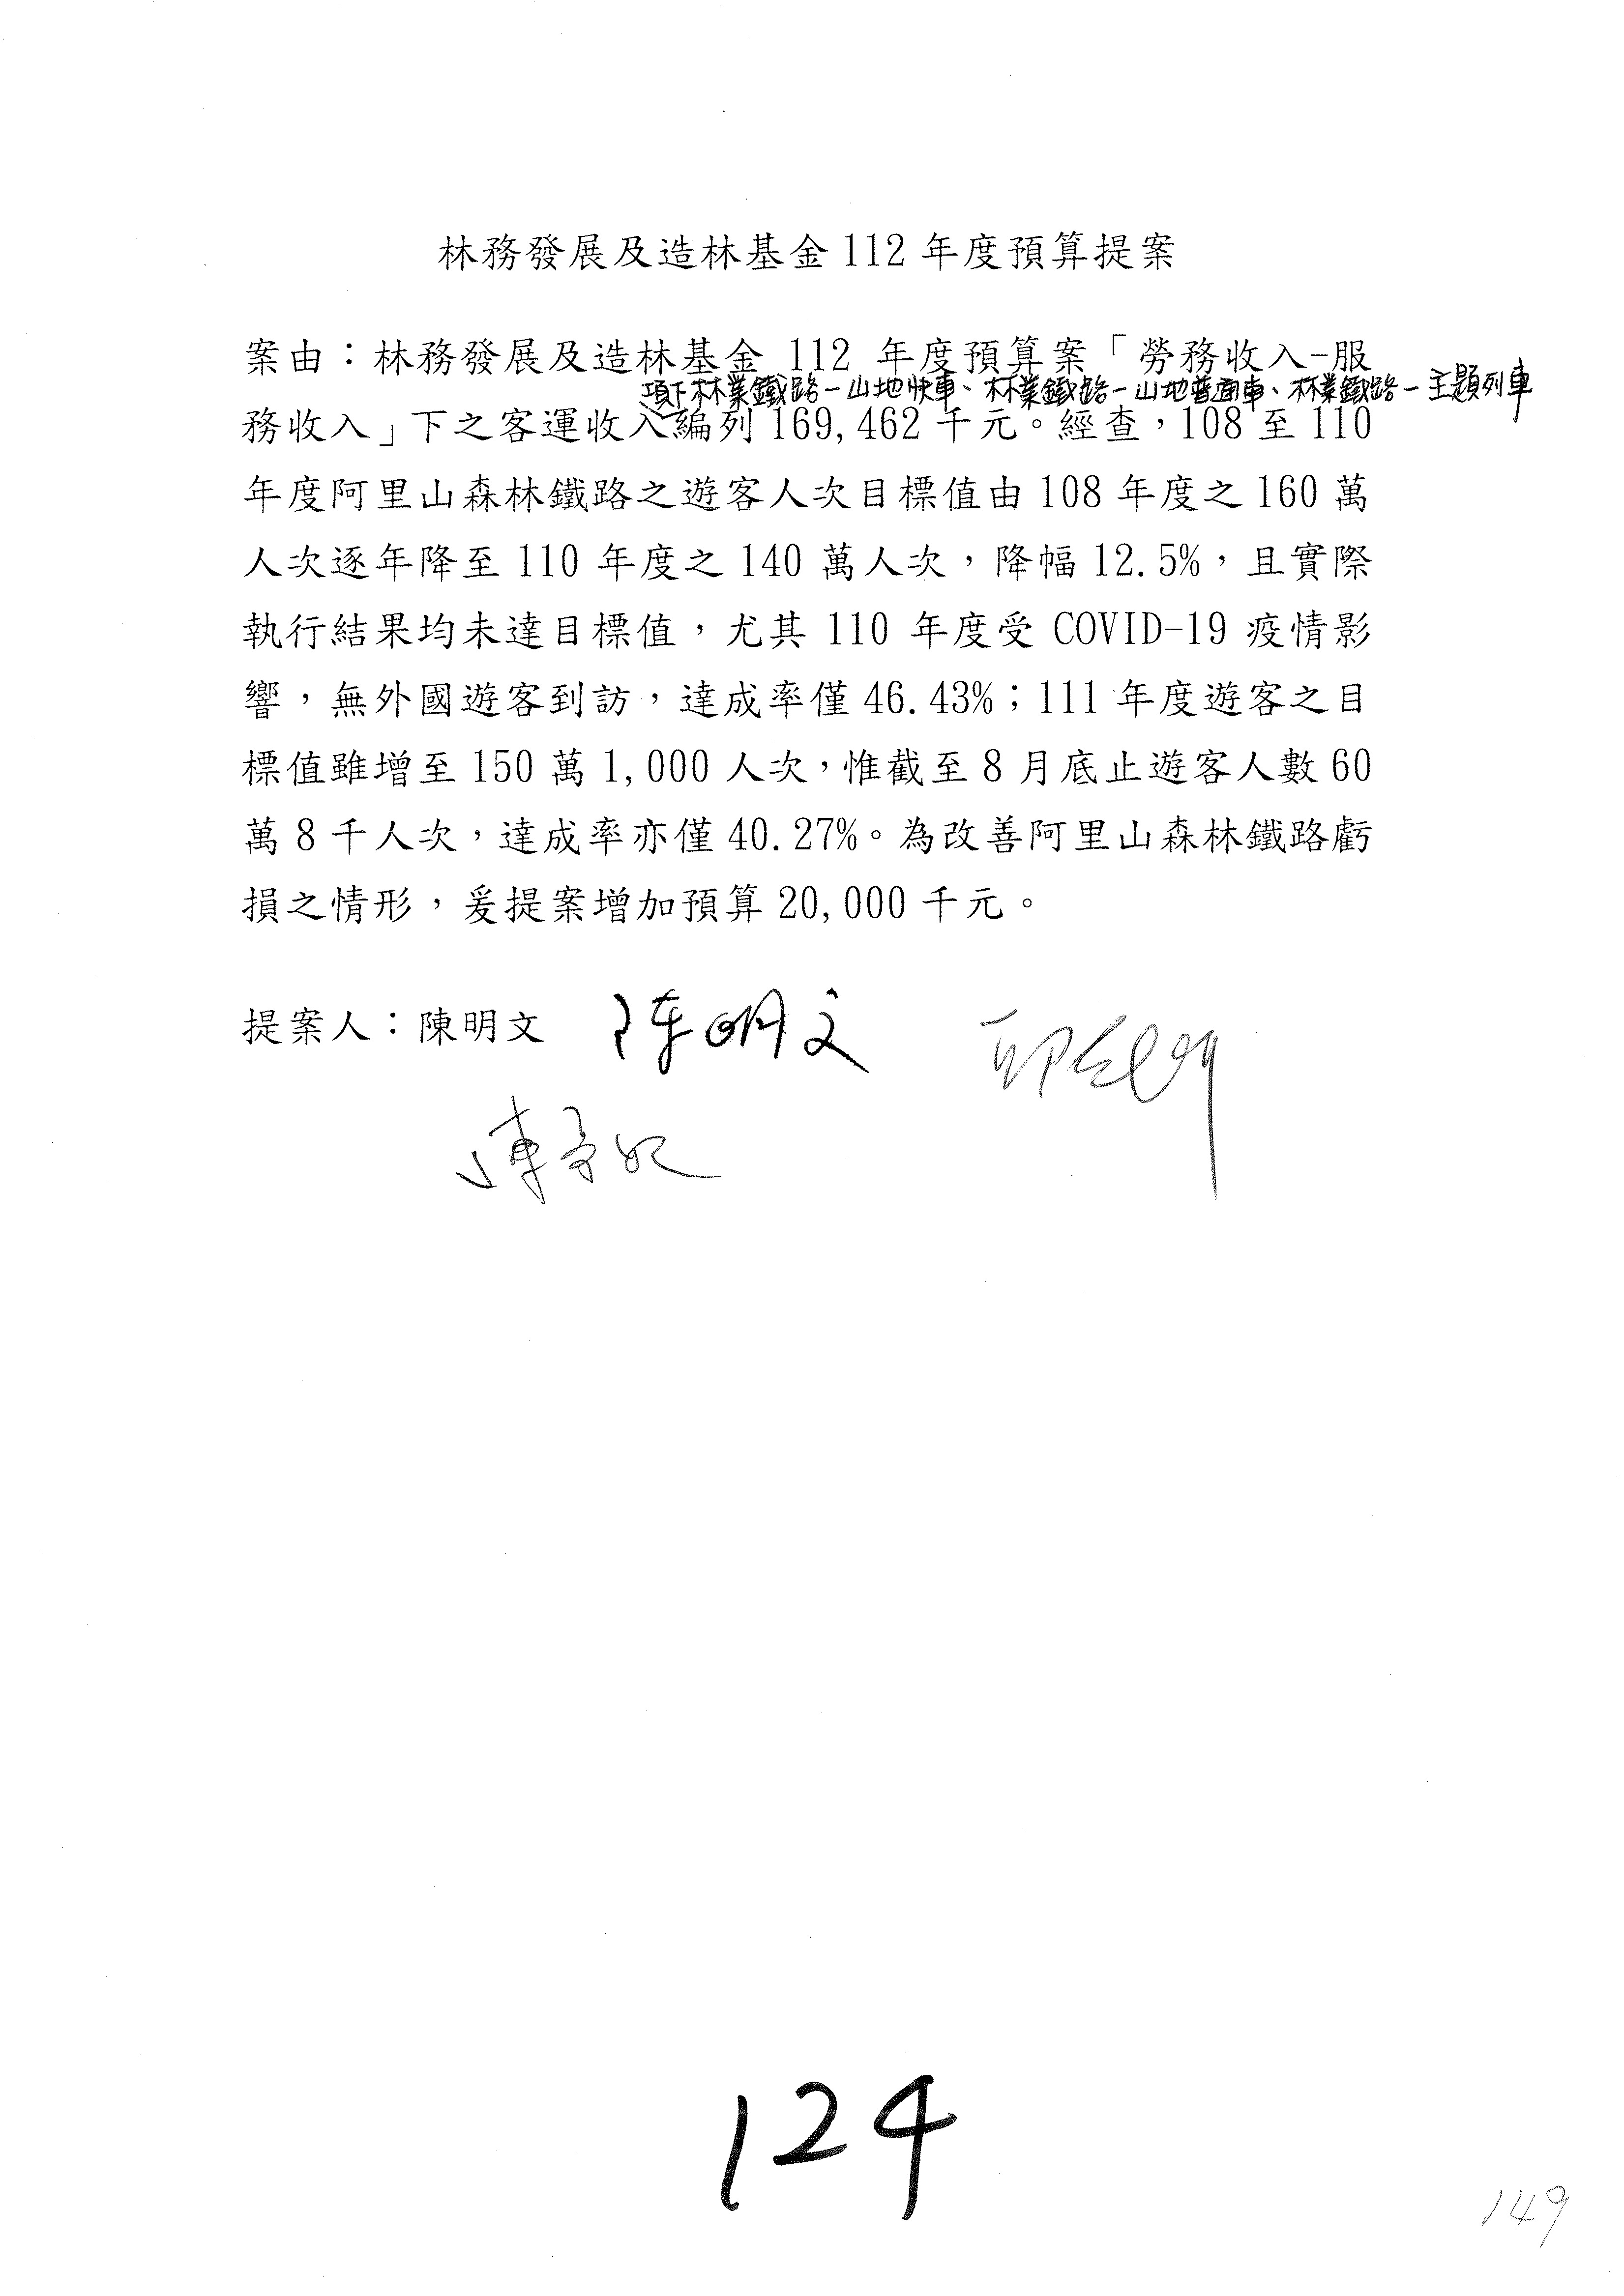 林務發展及造林基金 112 年度預算提案
案由：林務發展及造林基金 112 年度預算案「勞務收入-服
項下林業鐵路－山地快車、林業鐵路－山地普通車、林業鐵路－主題列車
務收入」下之客運收入編列 169,462 千元。經查，108 至 110
年度阿里山森林鐵路之遊客人次目標值由 108 年度之 160 萬
人次逐年降至 110 年度之 140 萬人次，降幅 12.5%，且實際
執行結果均未達目標值，尤其 110 年度受 COVID-19 疫情影
響，無外國遊客到訪，達成率僅 46.43%；111 年度遊客之目
標值雖增至 150 萬 1,000 人次，惟截至 8 月底止遊客人數 60
萬 8 千人次，達成率亦僅 40.27%。為改善阿里山森林鐵路虧
損之情形，爰提案增加預算 20,000 千元。
提案人：陳明文 陳明文
124
149